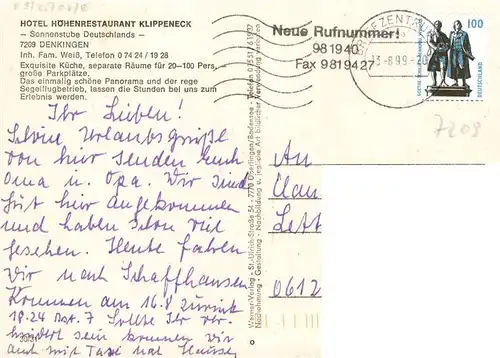 HOTEL HÖHENRESTAURANT KLIPPENECK
— Sonnenstube Deutschlands —
7209 DENKINGEN
Inh. Fam. Weiß, Telefon 0 74 24 / 19 28
Exquisite Küche, separate Räume für 20—100 Pers.,
große Parkplätze.
Das einmalig schöne Panorama und der rege
Segelflugbetrieb, lassen die Stunden bei uns zum
Erlebnis werden.
Ihr Lieben!
Schöne Urlaubsgrüße
von hier senden Euch
Oma u. Opa. Wir sind
gut hier angekommen
und haben schon viel
gesehen. Heute fahren
wir nach Schaffhausen
Kommen am 16.8 zurück
18.24 7 Sollte Ihr ver-
hindert sein kommen wir
auch mit Taxi nach Hause
Neue Rufnummer!
981940
Fax 9819427
BRIEFZENTRUM
-8.99-20
100
DEUTSCHLAND
7208
Werner-Verlag · St.-Ulrich-Straße 54 · 7770 Überlingen/Bodensee · Telefon 07551/61977
Nachahmung · Gestaltung · Nachbildung u. jegliche Art bildlicher Verwendung verboten
An
Clau
Lett
0612